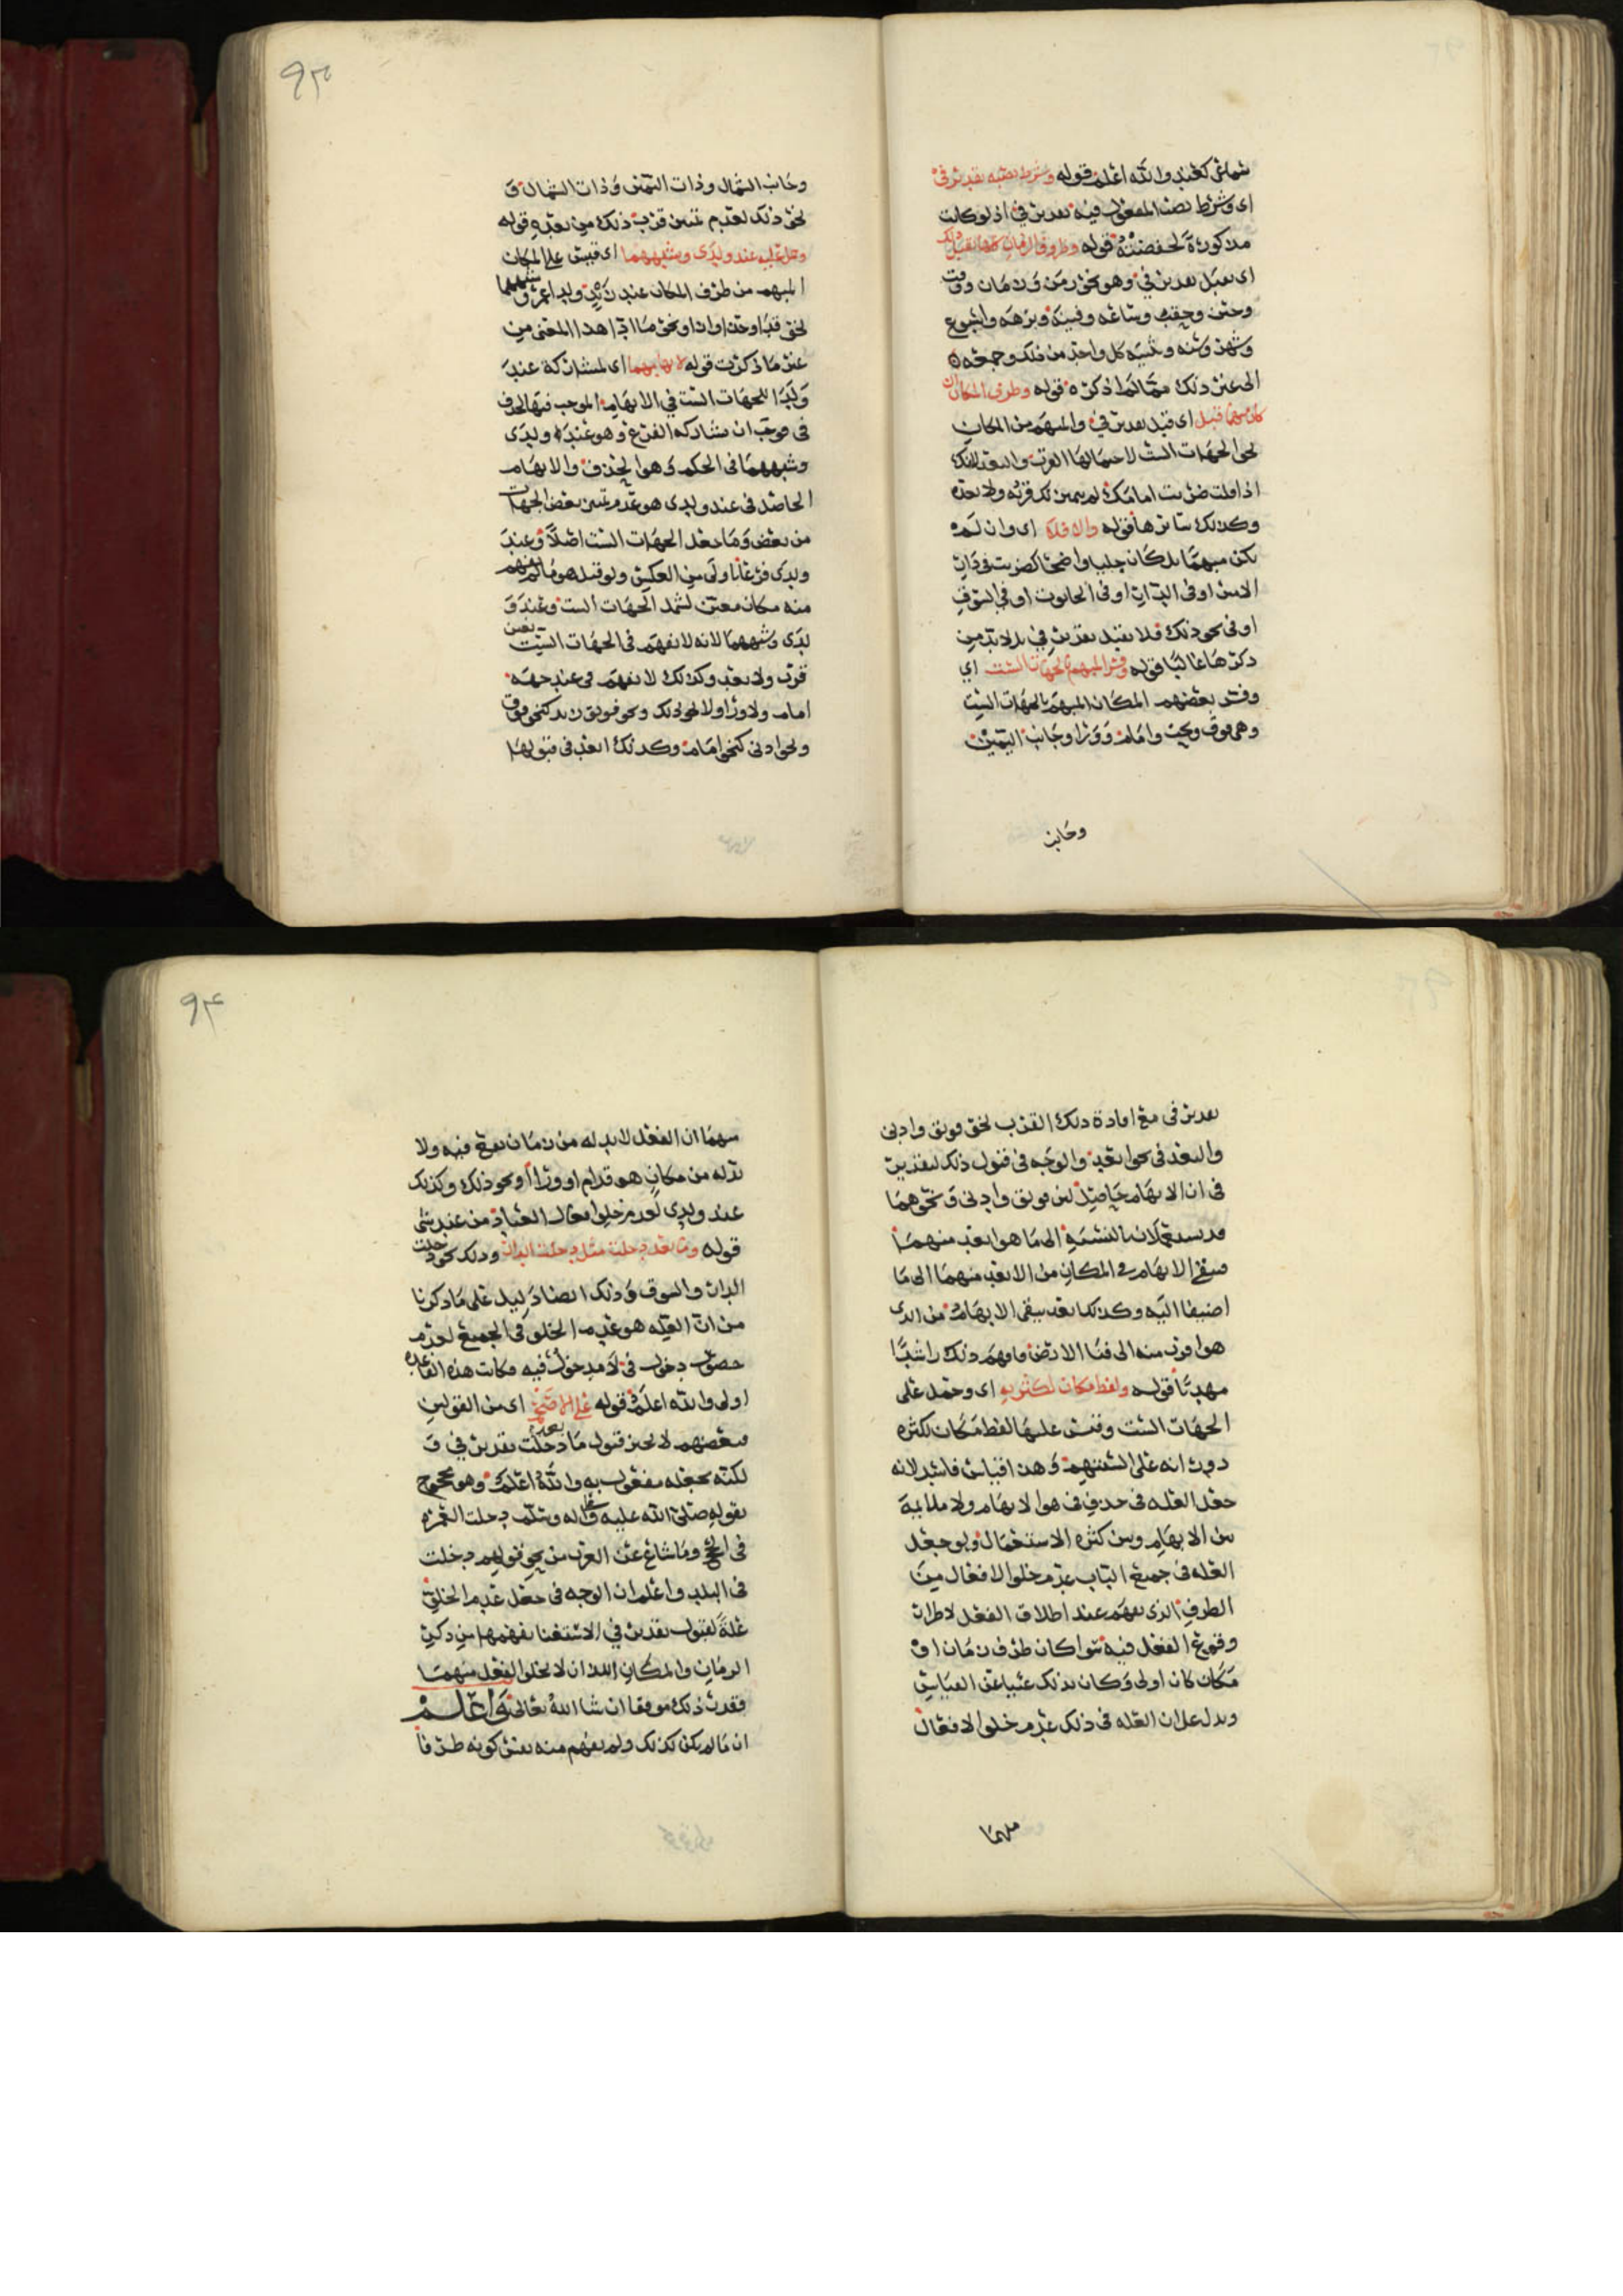 شماعى كعبد والله اعلم قوله وشرط نصبه تقدير في
اى وشرط نصب المفعول فيه تقدير في اذ لو كانت
مذكورة لخفضته قوله وظروف الزمان كلها تقبل ذلك
اى تقبل تقدير في وهو نحو زمن وزمان ووقت
وحين وحقب وساعه وفينة وبرهه واسبوع
وشهر وسنه وتثنيه كل واحد من ذلك وجمعه
الى غير ذلك ممّا لم اذكره قوله وظرف المكان ان
كان مبهما قبل اى قبل تقدير في والمبهم من المكان
نحو الجهات الست لاحتمالها القرب والبعد لانك
اذا قلت ضربت امامك لم يتبين لك قربه ولا بعده
وكذلك سائرها قوله والا فلا اى وان لم
يكن مبهما بل كان جليا واضحا كضربت في دار
الامير او في الدار او في الحانوت او في السوق
او في نحو ذلك فلا يقبل تقدير في بل لا بد من
ذكرها غالبا قوله وفسر المبهم بالجهات الست اي
وفسر بعضهم المكان المبهم بالجهات الست
وهى فوق وتحت وامام وورا وجانب اليمين
وجانب
٩٣
وجانب الشمال وذات اليمين وذات الشمال و
نحو ذلك لعدم تبين قرب ذلك من بعده قوله
وحمل عليه عند ولدى وشبههما اى قيس على المكان
المبهم من ظرف المكان عند زيد ولدا عمرو وشبههما
نحو قبا او حذا او ازا او نحو مما ادّا هذا المعنى من
غير ما ذكرت قوله لابهامهما اى لمشاركة عند
ولدا للجهات الست في الابهام الموجب فيها لحذف
فى موجب ان شاركه الفرع وهو عند ولدى
وشبههما فى الحكم وهو الحذف والابهام
الحاصل فى عند ولدى هو عدم تبين بعض الجهات
من بعض وما جعل الجهات الست اصلا وعند
ولدى فرعا باولى من العكس ولو قيل هو ما لم يفهم
منه مكان معين لشمل الجهات الست وعند و
لدى وشبههما لانه لا يفهم فى الجهات الست تعين
قرب ولا بعد وكذلك لا يفهم فى عند جهه
امام ولا ورا ولا نحو ذلك ونحو فويق زيد كنحو فوق
ونحو ادنى كنحو امام وكذلك ابعد فى قبولها
تقدير فى مع افادة ذلك القرب نحو فويق وادنى
والبعد فى نحو ابعد والوجه فى قبول ذلك لتقدير
فى ان الابهام حاصل لان فويق وادنى ونحوهما
قد يستعملان بالنسبة الى ما هو ابعد منهما
فيبقى الابهام فى المكان من الابعد منهما الى ما
اضيفا اليه وكذلك ابعد يبقى الابهام من الذى
هو اقرب منه الى فنا الارض فافهم ذلك راشدا
مهديا قوله ولفظ مكان لكثرته اى وحمل على
الجهات الست وقيس عليها لفظ مكان لكثره
دوره على السنتهم وهذا قياس فاسد لانه
جعل العله فى حذف فى هو الابهام ولا ملايمة
بين الابهام وبين كثره الاستعمال ولو جعل
العله فى جميع الباب عدم خلو الافعال من
الظرف الذى يفهم عند اطلاق الفعل لاطراد
وقوع الفعل فيه سوا كان ظرف زمان او
مكان كان اولى وكان بذلك غنيا عن القياس
ويدل على ان العله فى ذلك عدم خلو الافعال
منهما
٩٤
منهما ان الفعل لا بد له من زمان يقع فيه ولا
بد له من مكان هو قدام او ورا او نحو ذلك وكذلك
عند ولدى لعدم خلو افعال العباد من عند شى
قوله وما بعد دخلت مثل دخلت الدار وذلك نحو دخلت
الدار والسوق وذلك ايضا دليل على ما ذكرنا
من ان العله هو عدم الخلو فى الجميع لعدم
حصول دخول فى لا مدخول فيه فكانت هذه القاعده
اولى والله اعلم قوله على الاصح اى من القولين
فبعضهم لا يجيز قبول ما بعد دخلت تقدير في و
لكنه يجعله مفعولا به والله اعلم وهو محجوج
بقوله صلى الله عليه وآله وسلم دخلت العمره
فى الحج وما شاع عن العرب من نحو قولهم دخلت
فى البلد واعلم ان الوجه فى جعل عدم الخلو
علة لقبول تقدير في الاستغنا بفهمها من ذكر
الزمان والمكان اللذان لا يخلو الفعل منهما
فقدر ذلك موفقا ان شا الله تعالى واعلم
ان ما لم يكن كذلك ولم يفهم منه بعين كونه ظرفا